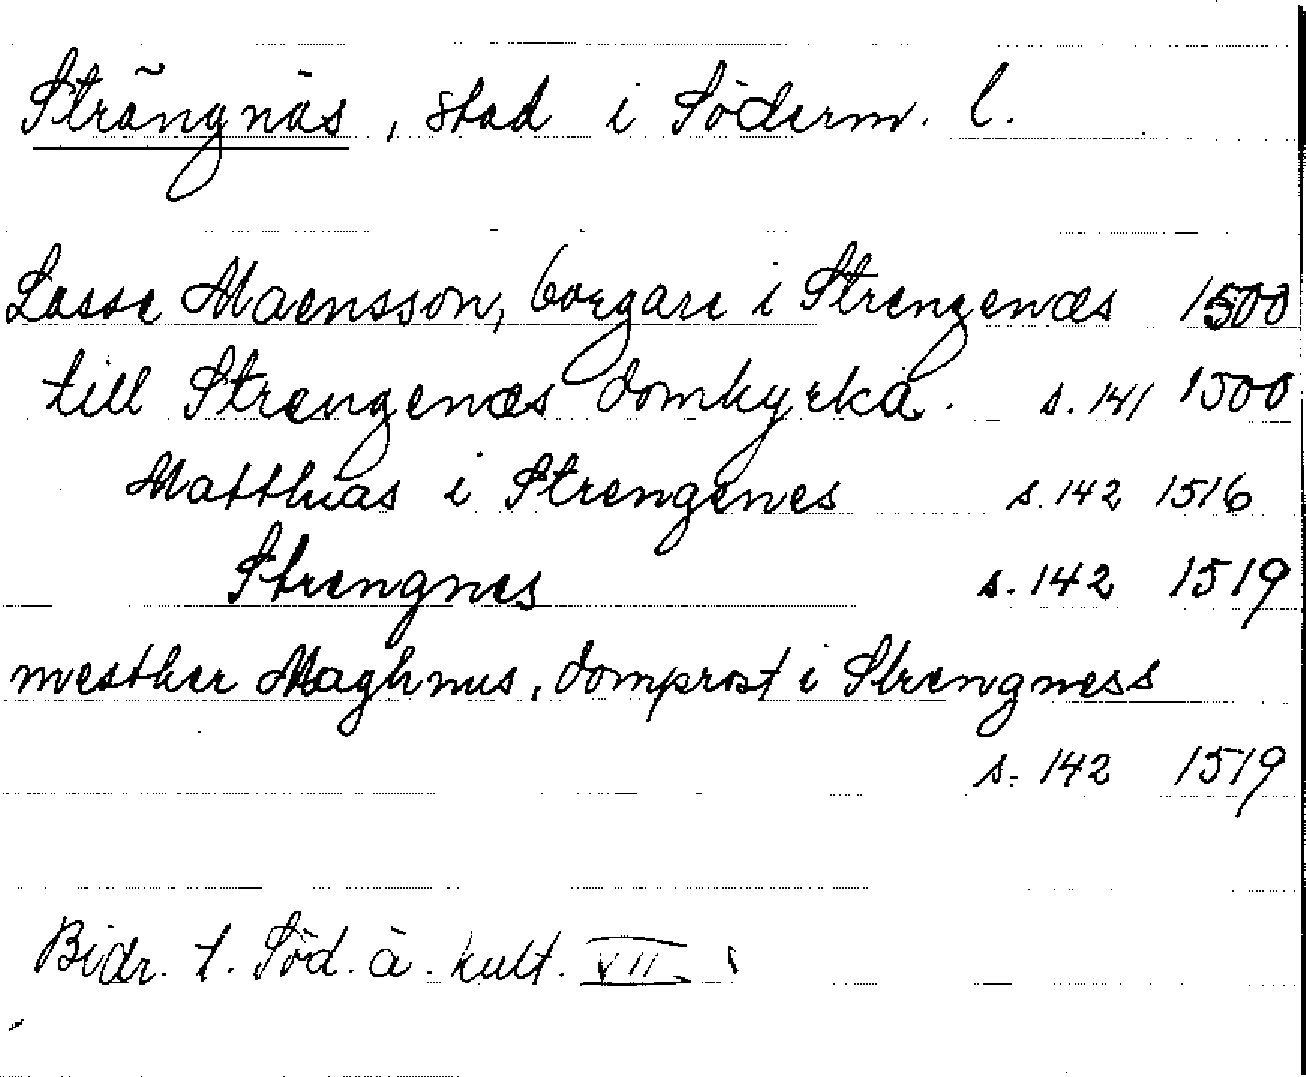 Strängnäs, stad i Söderm. l.
Lasse Maensson, borgare i Strengenæs 1500
till Strengenæs domkyrka. s. 141 1500
Matthias i Strengenes s. 142 1516
Strengnes s. 142 1519
mesther Maghnus, domprost i Strengness
s. 142 1519
Bidr. t. Söd. ä. kult. VII.